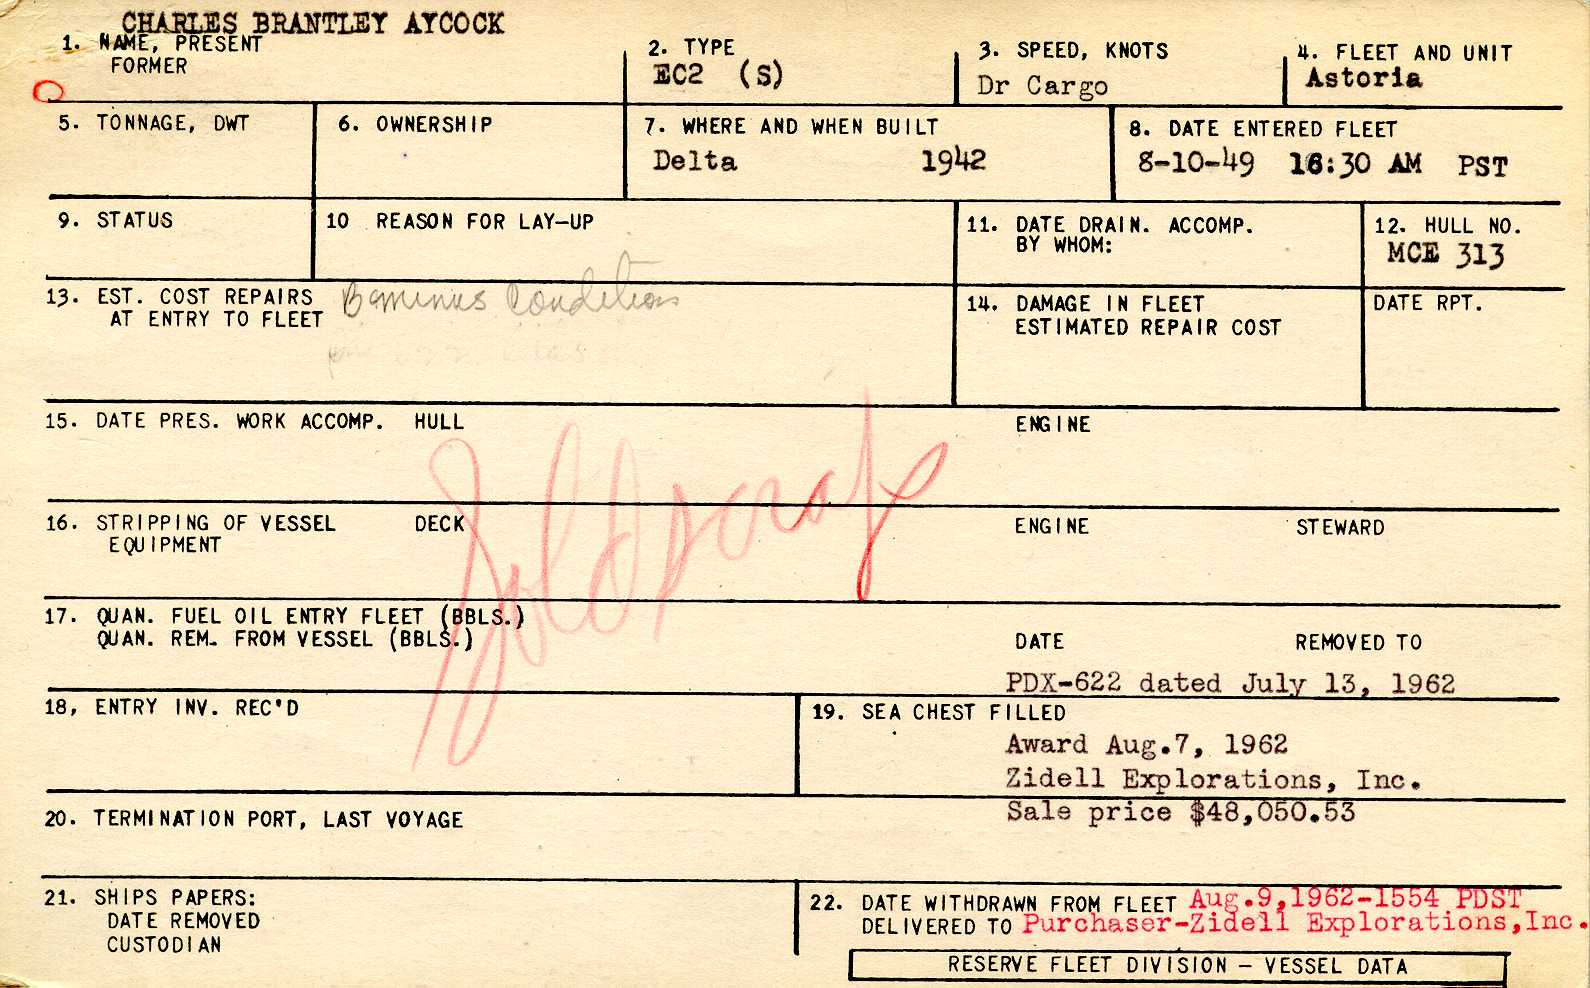 CHARLES BRANTLEY AYCOCK
1. NAME, PRESENT
FORMER
2. TYPE
EC2 (S)
3. SPEED, KNOTS
Dr Cargo
4. FLEET AND UNIT
Astoria
5. TONNAGE, DWT
6. OWNERSHIP
7. WHERE AND WHEN BUILT
Delta 1942
8. DATE ENTERED FLEET
8-10-49 10:30 AM PST
9. STATUS
10 REASON FOR LAY-UP
11. DATE DRAIN. ACCOMP.
BY WHOM:
12. HULL NO.
MCE 313
13. EST. COST REPAIRS
AT ENTRY TO FLEET
B-minus Condition
14. DAMAGE IN FLEET
ESTIMATED REPAIR COST
DATE RPT.
15. DATE PRES. WORK ACCOMP. HULL ENGINE
Sold scrap
16. STRIPPING OF VESSEL DECK ENGINE STEWARD
EQUIPMENT
17. QUAN. FUEL OIL ENTRY FLEET (BBLS.)
QUAN. REM. FROM VESSEL (BBLS.) DATE REMOVED TO
PDX-622 dated July 13, 1962
18, ENTRY INV. REC'D
19. SEA CHEST FILLED
Award Aug.7, 1962
Zidell Explorations, Inc.
Sale price $48,050.53
20. TERMINATION PORT, LAST VOYAGE
21. SHIPS PAPERS:
DATE REMOVED
CUSTODIAN
22. DATE WITHDRAWN FROM FLEET Aug.9,1962-1554 PDST
DELIVERED TO Purchaser-Zidell Explorations,Inc.
RESERVE FLEET DIVISION – VESSEL DATA